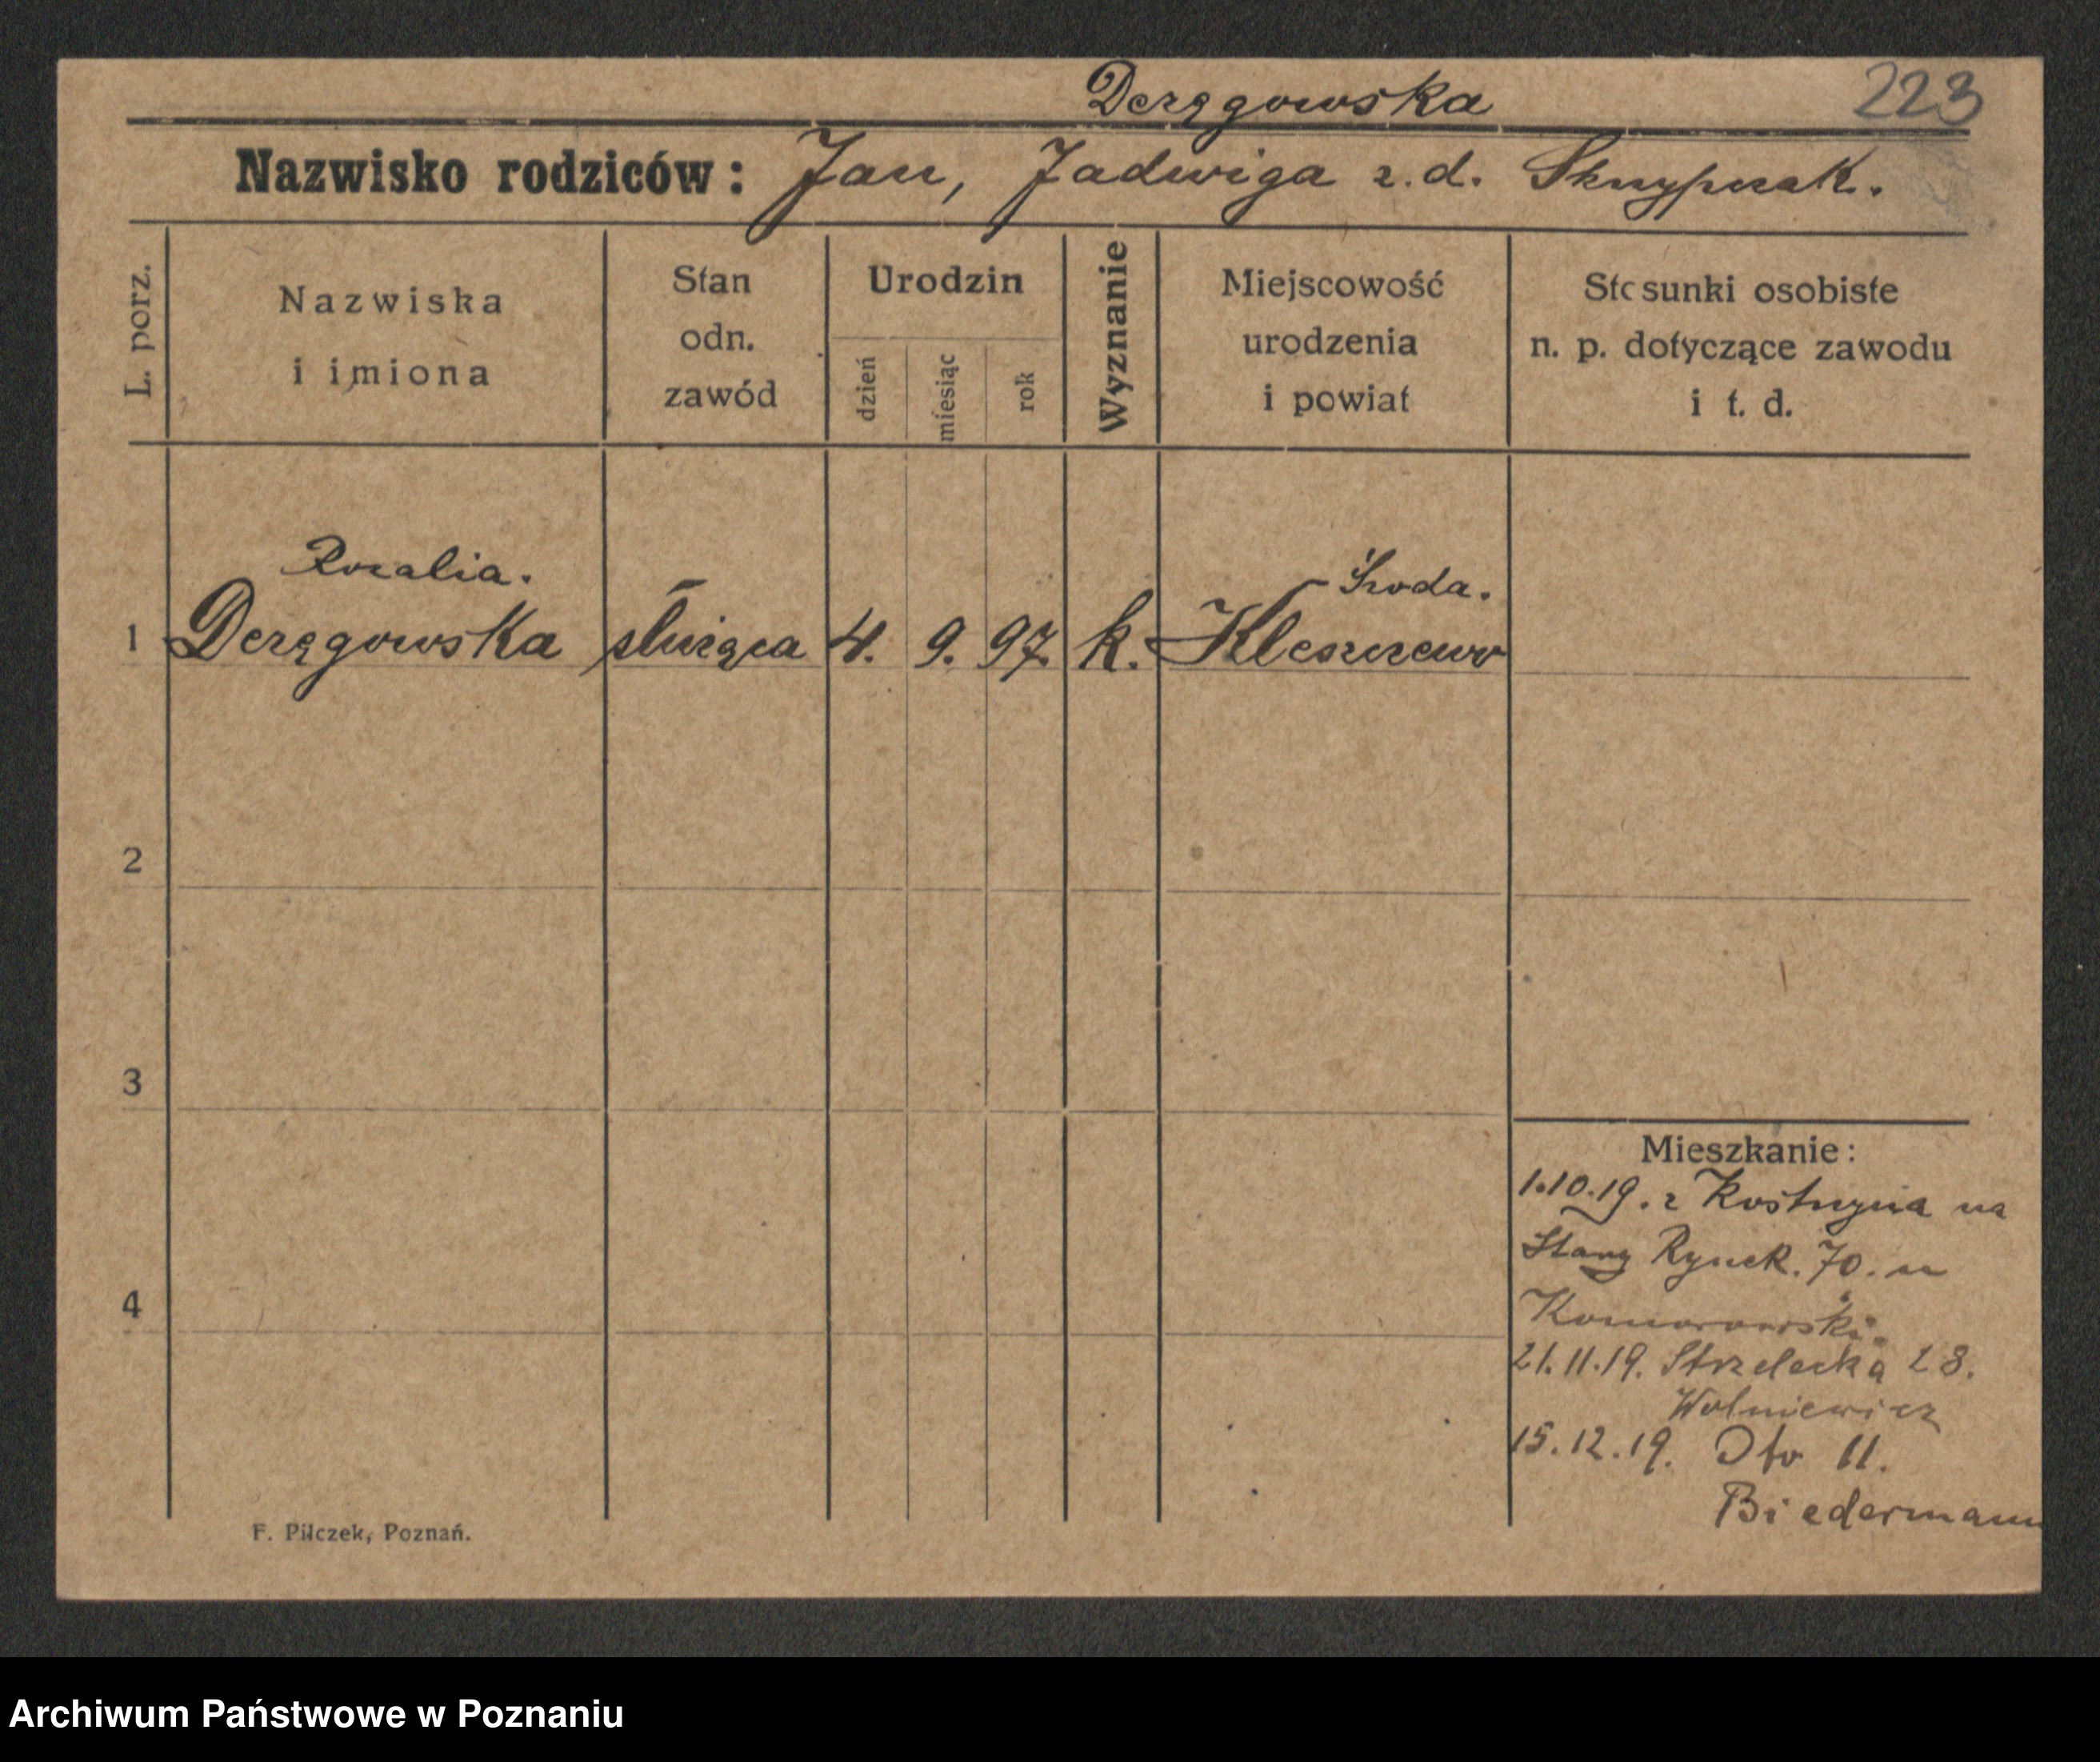 Deręgowska 223
Nazwisko rodziców: Jan, Jadwiga z. d. Skrzypczak.
L. porz.
Nazwiska
i imiona
Stan
odn.
zawód
Urodzin
dzień
miesiąc
rok
Wyznanie
Miejscowość
urodzenia
i powiat
Stosunki osobiste
n. p. dotyczące zawodu
i t. d.
Rozalia. Środa.
1 Deręgowska służąca 4. 9. 97. k. Kleszczewo
2
3
4
Mieszkanie:
1.10.19. z Kostrzyna na
Stary Rynek. 70. u
Komorowski.
21.11.19. Strzelecka 28.
Wolniewicz
15.12.19. Dto 11.
Biedermann
F. Pilczek, Poznań.
Archiwum Państwowe w Poznaniu